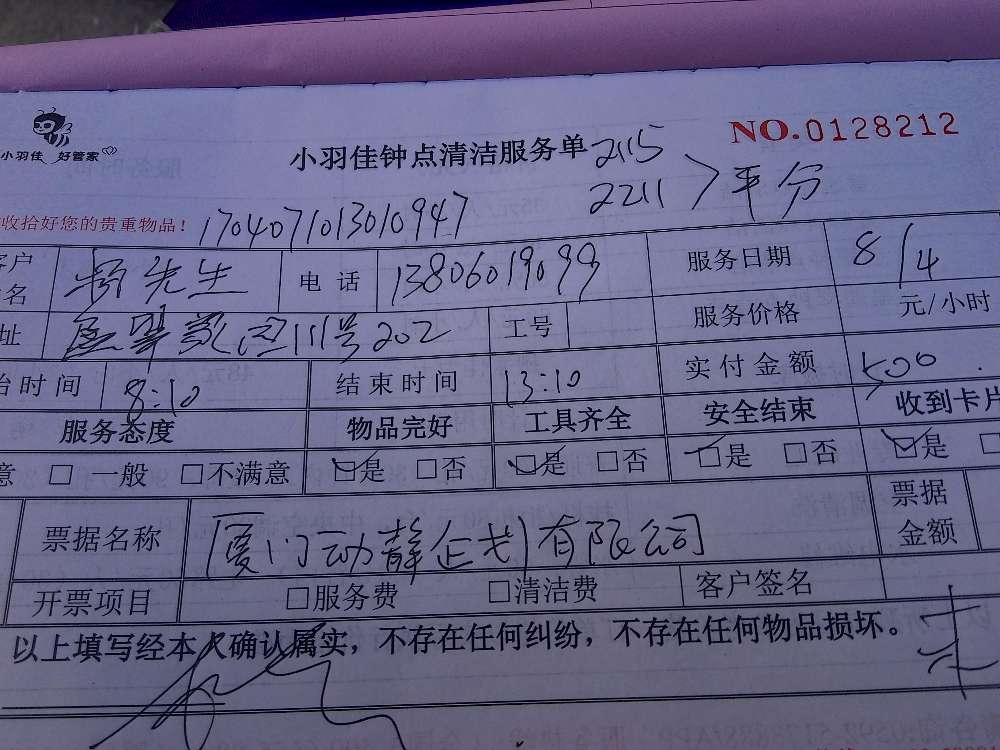 小羽佳 好管家
小羽佳钟点清洁服务单 2115
NO.0128212
2211 > 平分
收拾好您的贵重物品！ 170407101301094​7
客户 先生 电话 13806019099 服务日期 8/4
名
址 111号202 工号 服务价格 元/小时
始时间 8:10 结束时间 13:10 实付金额 500
服务态度 物品完好 工具齐全 安全结束 收到卡片
意 □ 一般 □不满意 ☑是 □否 ☑是 □否 ☑是 □否 ☑是
票据名称 厦门动静企划有限公司 票据金额
开票项目 □服务费 □清洁费 客户签名
以上填写经本人确认属实，不存在任何纠纷，不存在任何物品损坏。